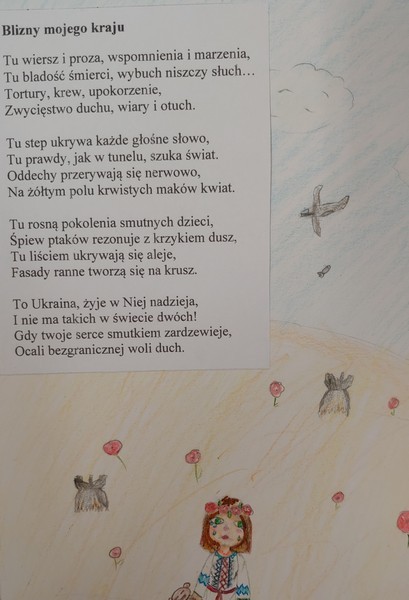 Blizny mojego kraju
Tu wiersz i proza, wspomnienia i marzenia,
Tu bladość śmierci, wybuch niszczy słuch…
Tortury, krew, upokorzenie,
Zwycięstwo duchu, wiary i otuch.
Tu step ukrywa każde głośne słowo,
Tu prawdy, jak w tunelu, szuka świat.
Oddechy przerywają się nerwowo,
Na żółtym polu krwistych maków kwiat.
Tu rosną pokolenia smutnych dzieci,
Śpiew ptaków rezonuje z krzykiem dusz,
Tu liściem ukrywają się aleje,
Fasady ranne tworzą się na krusz.
To Ukraina, żyje w Niej nadzieja,
I nie ma takich w świecie dwóch!
Gdy twoje serce smutkiem zardzewieje,
Ocali bezgranicznej woli duch.